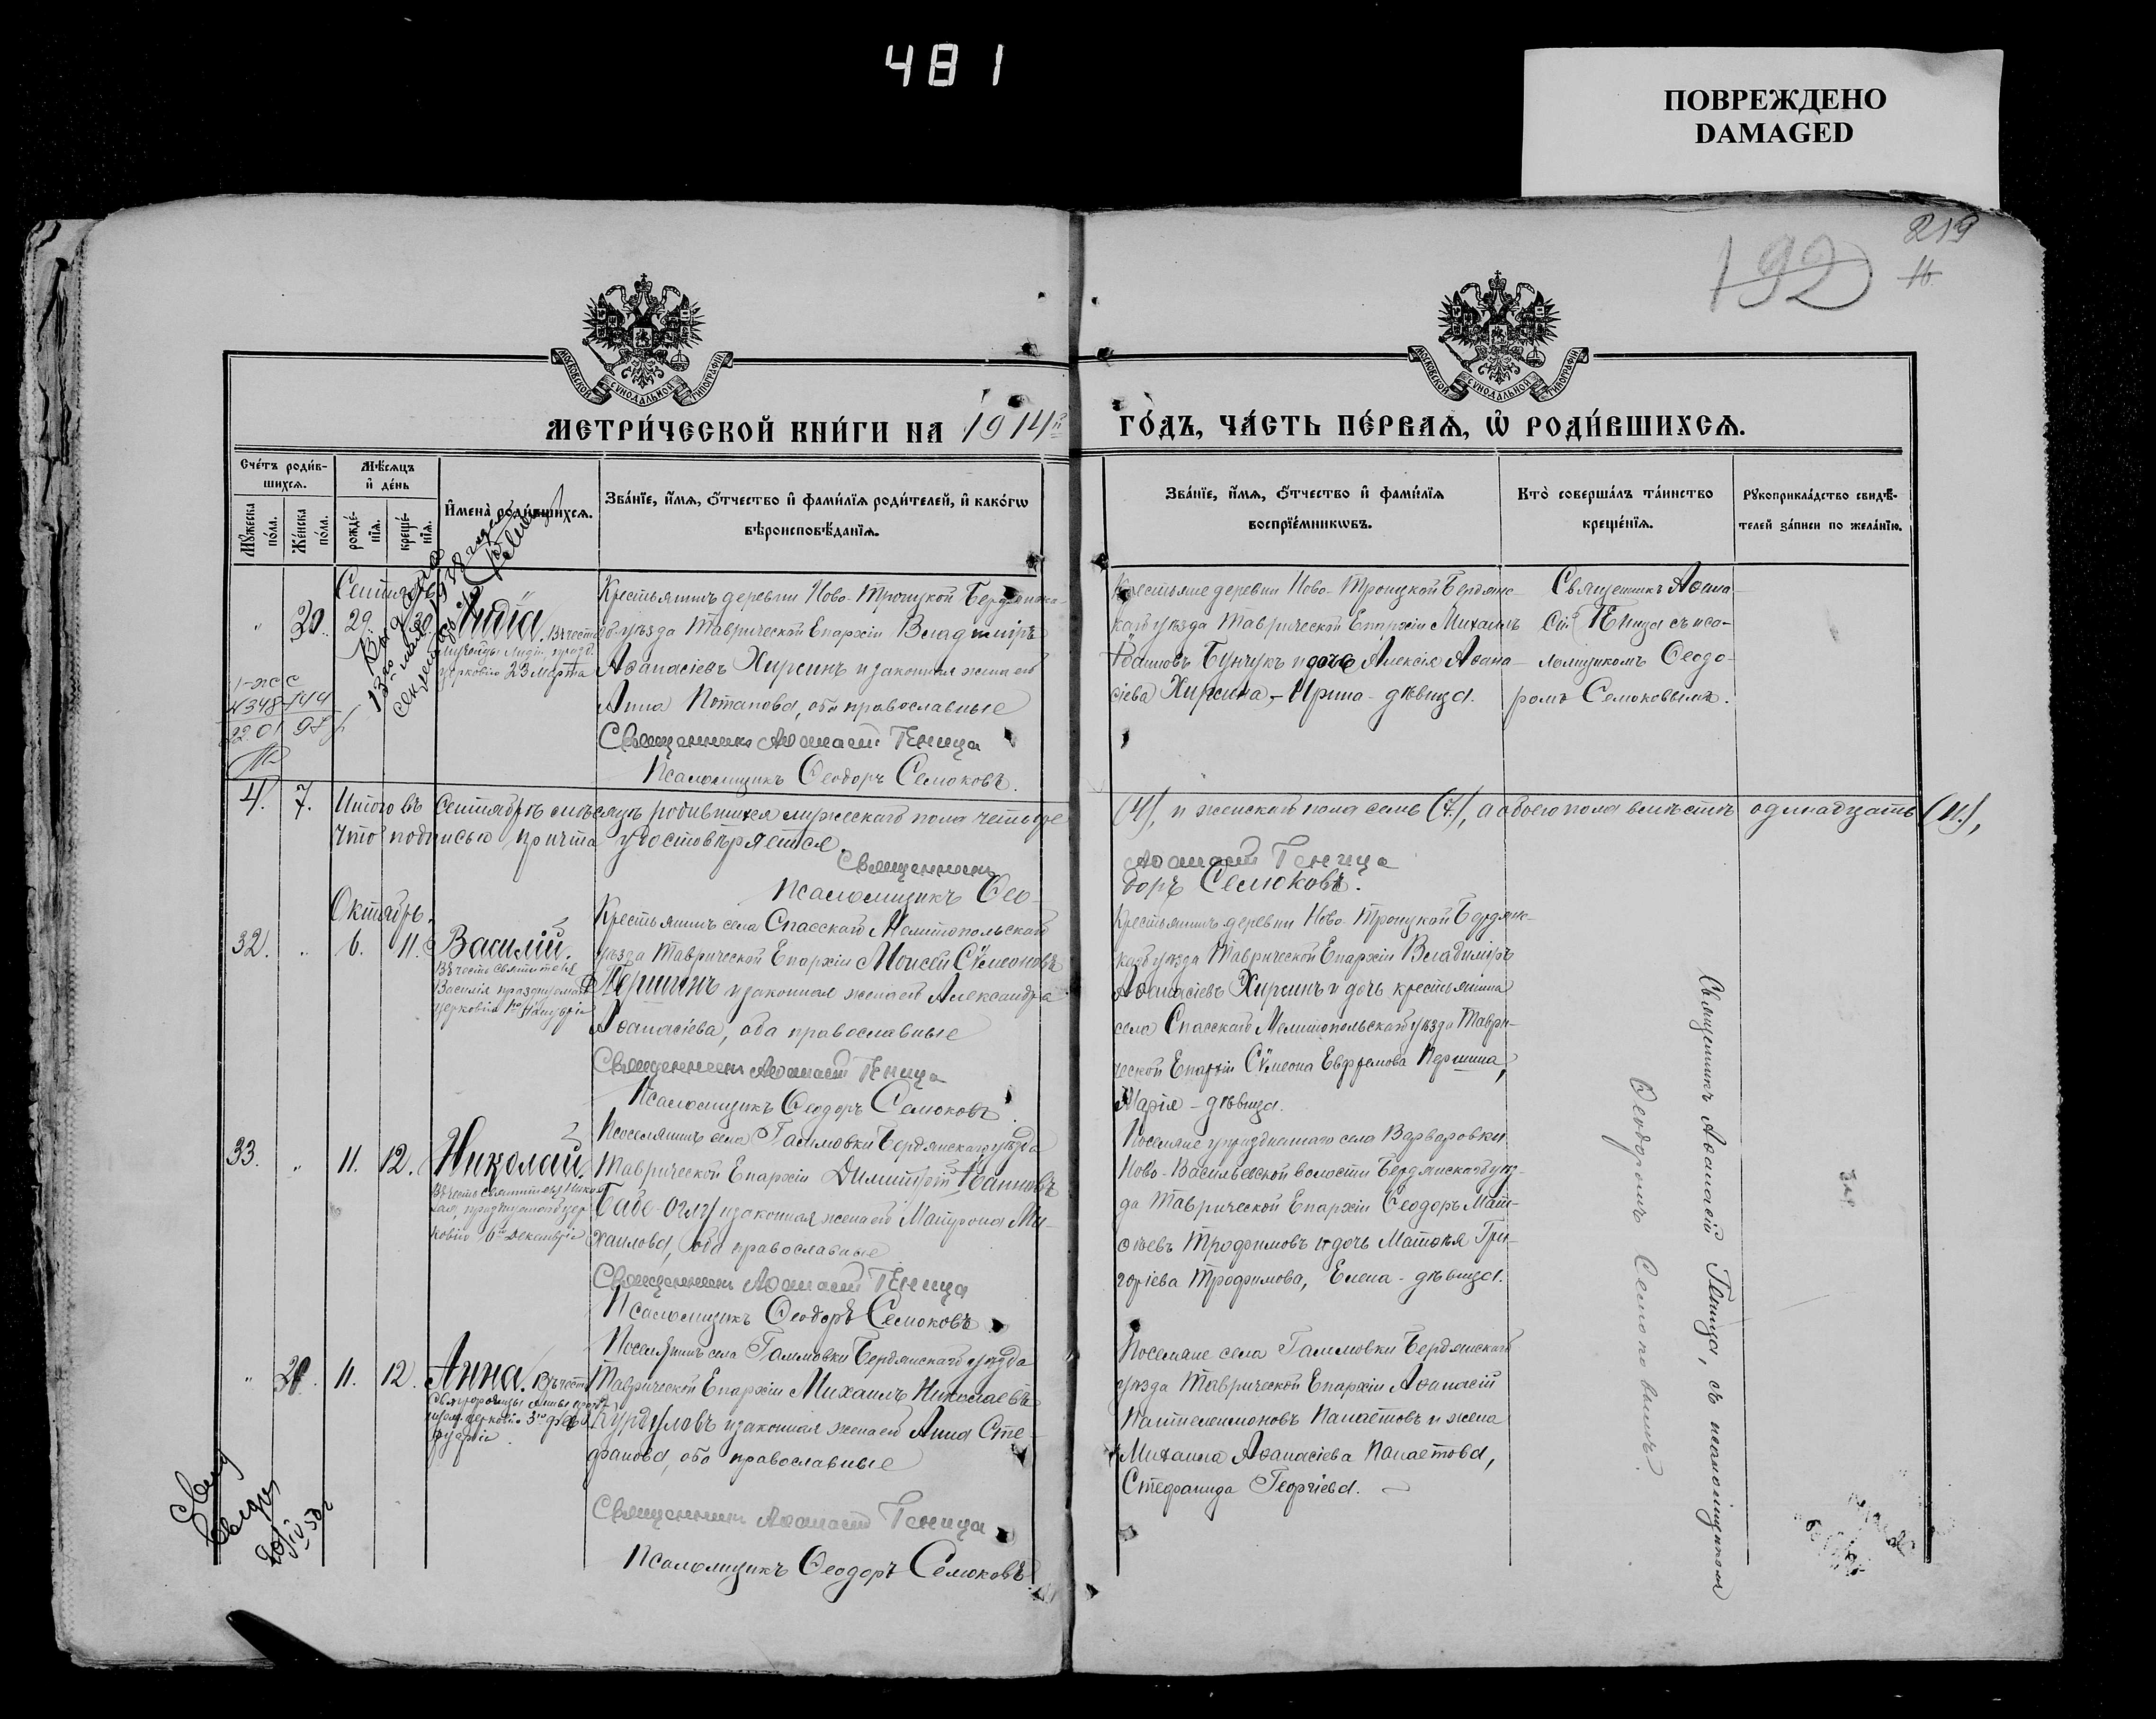 481
ПОВРЕЖДЕНО
DAMAGED
219
192
МОСКОВСКОЙ СѴНОДАЛЬНОЙ ТИПОГРАФІИ
МОСКОВСКОЙ СѴНОДАЛЬНОЙ ТИПОГРАФІИ
МЕТРИ́ЧЕСКОЙ КНИ́ГИ НА 1914й
ГО́ДЪ, ЧА́СТЬ ПЕ́РВАѦ, Ѡ РОДИ́ВШИХСѦ.
Сче́тъ роди́в-
шихсѧ.
Мꙋ́жеска по́ла.
Же́нска по́ла.
Мѣ́сѧцъ
и҆ де́нь
рожде́-
нїѧ.
креще́-
нїѧ.
И҆мена̀ роди́вшихсѧ.
Зва́нїе, и҆́мѧ, ѻ҆́тчество и҆ фами́лїѧ роди́телей, и҆ како́гѡ
вѣроисповѣ́данїѧ.
Зва́нїе, и҆́мѧ, ѻ҆́тчество и҆ фами́лїѧ
воспрїе́мникѡвъ.
Кто̀ соверша́лъ та́инство
креще́нїѧ.
Рꙋкоприкла́дство свидѣ́-
телей за́писи по жела́нїю.
Сентябрь
29. 29. Лидія. Въ честь
церковію 23 марта
Крестьянинъ деревни Ново-Троицкой Бердянска-
го уѣзда Таврической Епархіи Владиміръ
Аѳанасіевъ Хирсинъ и законная жена его
Анна Потапова, оба православные
Священникъ Аѳанасій Геница
Псаломщикъ Ѳеодоръ Семоковъ.
Крестьяне деревни Ново-Троицкой Бердянс-
каго уѣзда Таврической Епархіи Михаилъ
Бунчукъ и дочь Алексія Аѳана-
сіева Хирсина, - Ирина - дѣвица.
Священникъ Аѳана-
сій Геница съ пса-
ломщикомъ Ѳеодо-
ромъ Семоковымъ.
4. 7. Итого въ Сентябрѣ мѣсяцѣ родившихся мужескаго пола четыре
(4), и женскаго пола семь (7.), а обоего пола вмѣстѣ одинадцать (11.),
что подписью причта удостовѣряется.
Священникъ
Аѳанасій Геница
Псаломщикъ Ѳео-
доръ Семоковъ.
Октябрь.
32. „ 6. 11. Василій.
Въ честь святителя
Василія празднуемаго
церковію 1го Января
Крестьянинъ села Спасскаго Мелитопольскаго
уѣзда Таврической Епархіи Моисей Сѵмеоновъ
Першинъ и законная жена его Александра
Аѳанасіева, оба православные
Священникъ Аѳанасій Геница
Псаломщикъ Ѳеодоръ Семоковъ.
Крестьянинъ деревни Ново-Троицкой Бердянс-
каго уѣзда Таврической Епархіи Владиміръ
Аѳанасіевъ Хирсинъ и дочь крестьянина
села Спасскаго Мелитопольскаго уѣзда Таври-
ческой Епархіи Сѵмеона Евфремова Першина,
Марія - дѣвица.
33. „ 11. 12. Николай.
Въ честь святителя Нико-
лая, празднуемаго цер-
ковію 6го Декабря
Поселянинъ села Гаммовки Бердянскаго уѣзда
Таврической Епархіи Димитрій Іоанновъ
Баде-Оглу и законная жена его Матрона Ми-
хаилова, оба православные
Священникъ Аѳанасій Геница
Псаломщикъ Ѳеодоръ Семоковъ.
Поселяне упраздненнаго села Варваровки
Ново-Васильевской волости Бердянскаго уѣз-
да Таврической Епархіи Ѳеодоръ Мат-
ѳіевъ Трофимовъ и дочь Матѳея Гри-
горіева Трофимова, Елена - дѣвица.
„ 11. 12. Анна. Въ честь
Св. пророчицы Анны
церковію 3го фев-
Поселянинъ села Гаммовки Бердянскаго уѣзда
Таврической Епархіи Михаилъ Николаевъ
Курдуловъ и законная жена его Анна Сте-
фанова, оба православные
Священникъ Аѳанасій Геница
Псаломщикъ Ѳеодоръ Семоковъ
Поселяне села Гаммовки Бердянскаго
уѣзда Таврической Епархіи Аѳанасій
Пантелеимоновъ Панаетовъ и жена
Михаила Аѳанасіева Панаетова,
Стефанида Георгіева.
Священникъ Аѳанасій Геница, съ псаломщикомъ
Ѳеодоромъ Семоковымъ.